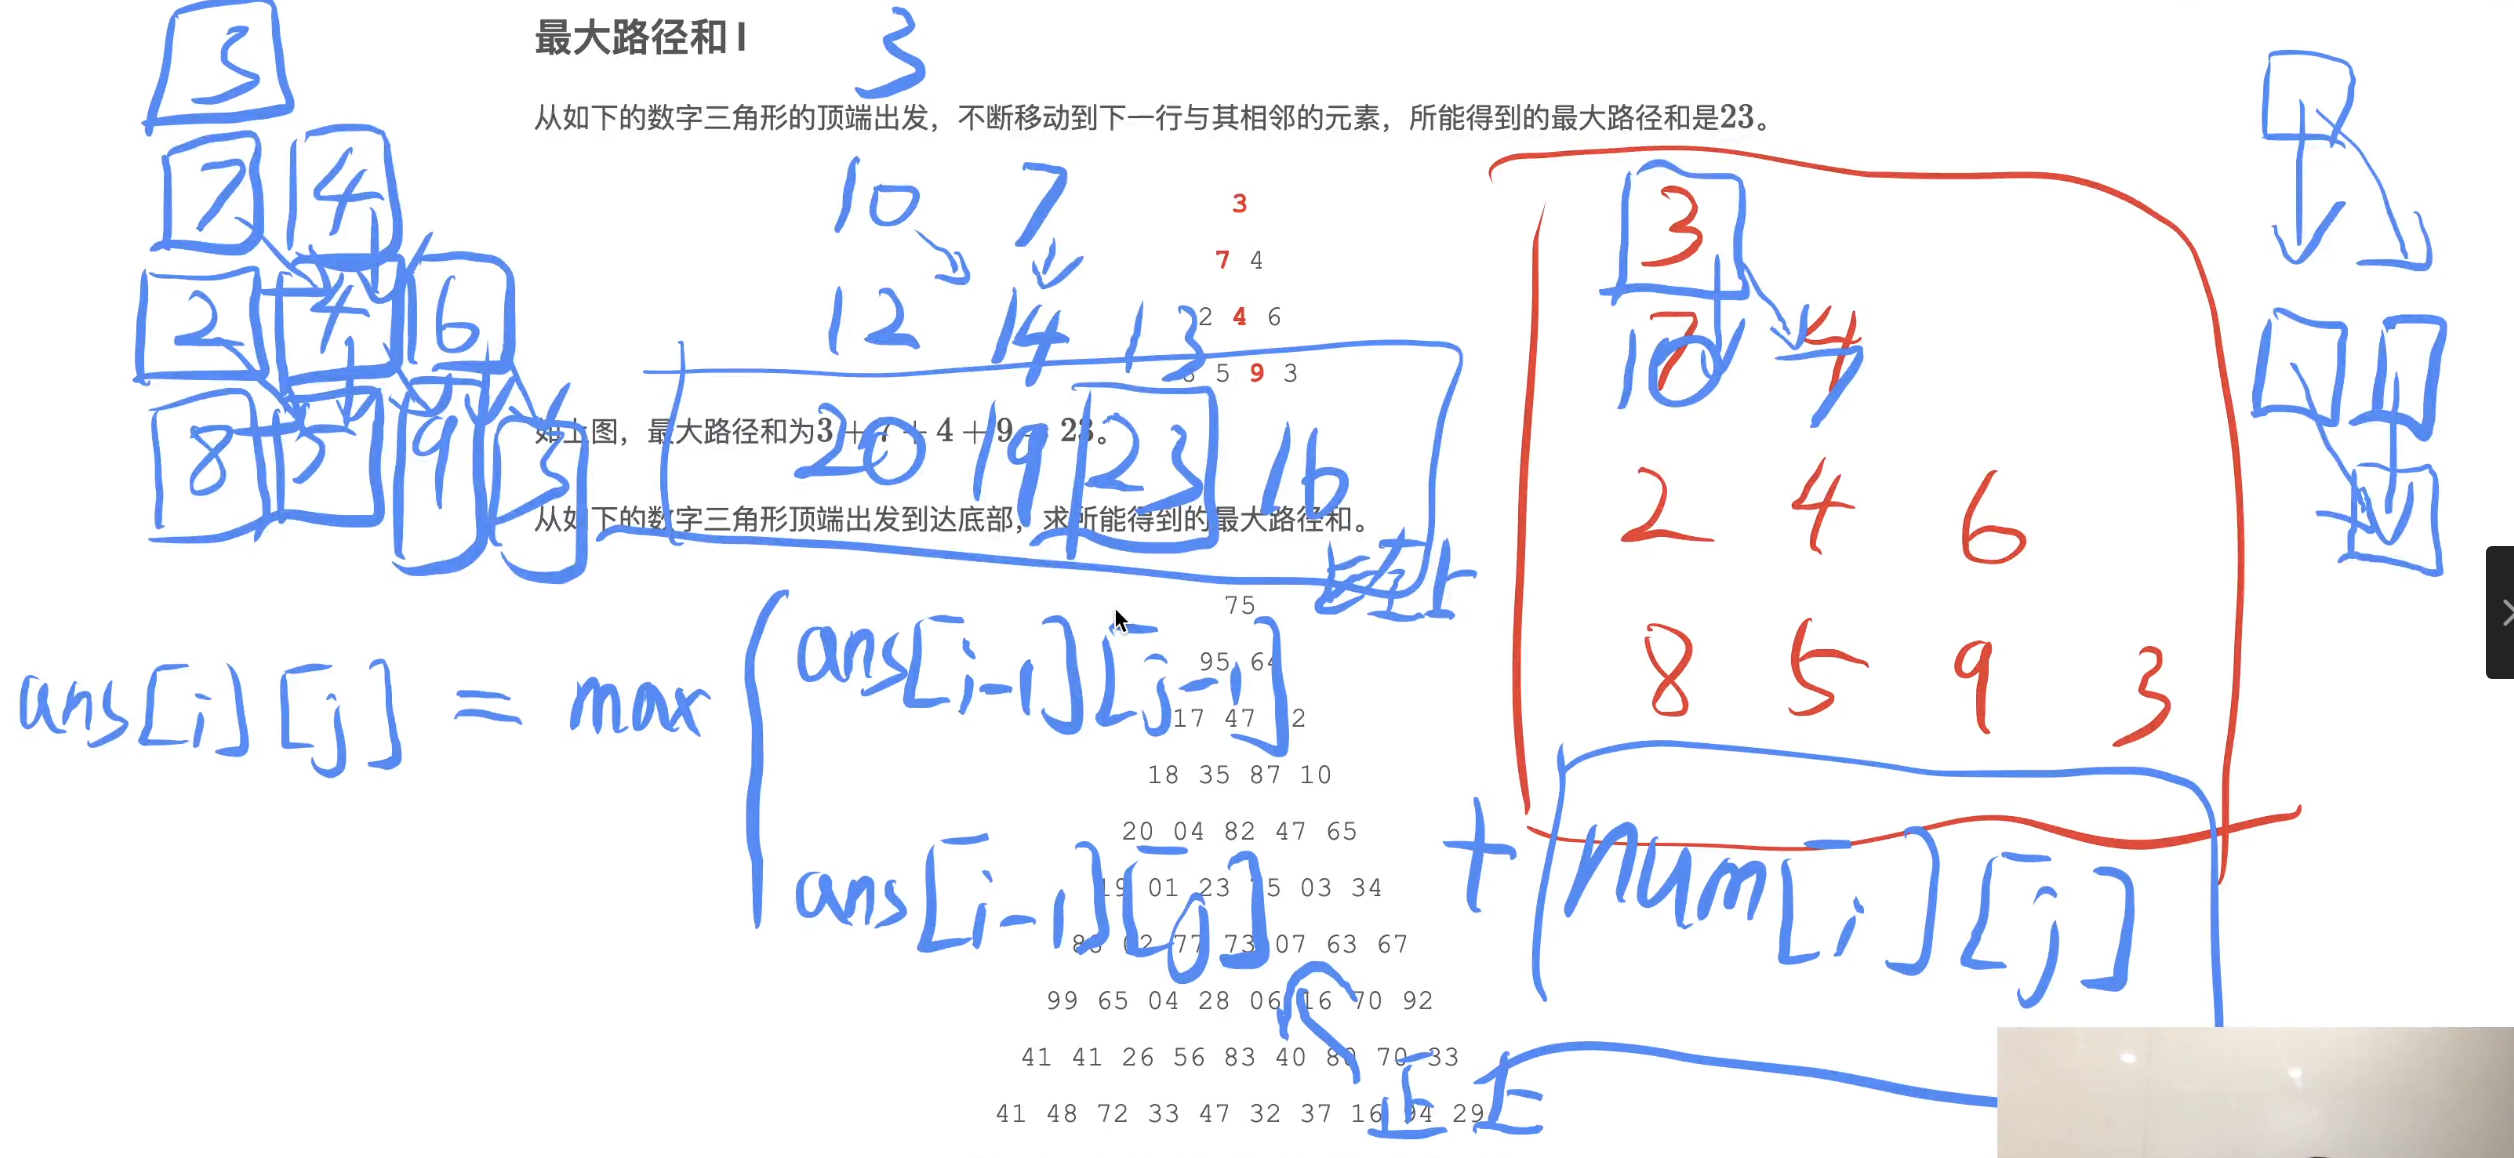 最大路径和 I
3
从如下的数字三角形的顶端出发，不断移动到下一行与其相邻的元素，所能得到的最大路径和是23。
3
7 4
2 4 6
5 9 3
如上图，最大路径和为3 + 7 + 4 + 9 = 23。
从如下的数字三角形顶端出发到达底部，求所能得到的最大路径和。
75
95 64
17 47 2
18 35 87 10
20 04 82 47 65
19 01 23 75 03 34
88 02 77 73 07 63 67
99 65 04 28 06 16 70 92
41 41 26 56 83 40 80 70 33
41 48 72 33 47 32 37 16 94 29
3
7 4
2 4 6
8 5 9 3
10 7
12 14 13
20 19 23 16
3
7 4
10 7
2 4 6
8 5 9 3
ans[i][j] = max
ans[i-1][j-1]
ans[i-1][j]
+ num[i][j]
左上
正上